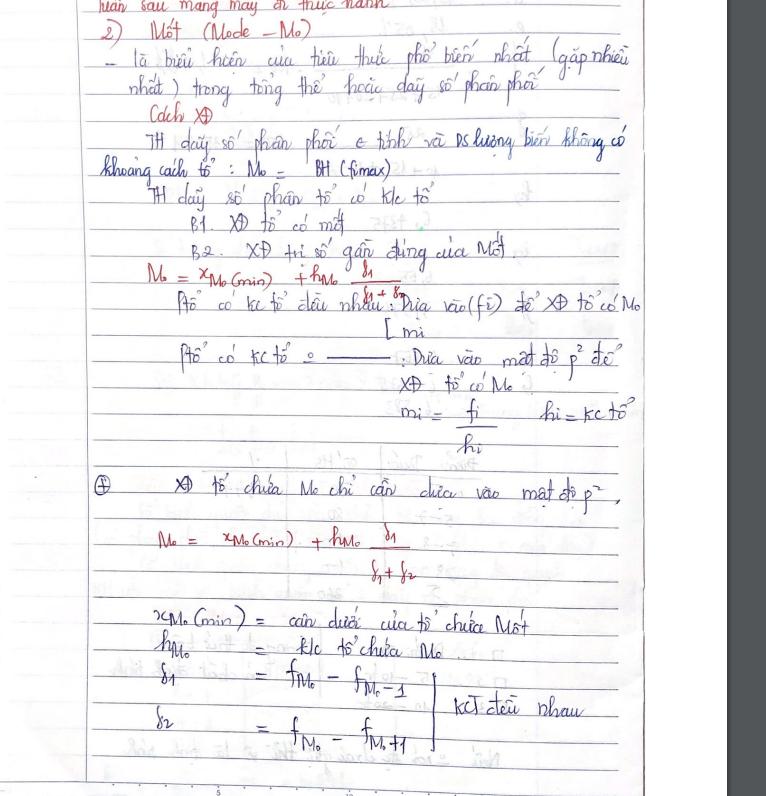 luân sau mang máy đi thực hành
2) Mốt (Mode - Mo)
- là biểu hiện của tiêu thức phổ biến nhất (gặp nhiều
nhất) trong tổng thể hoặc dãy số phân phối
Cách XĐ
TH dãy số phân phối t tính và DS lượng biến không có
khoảng cách tổ : Mo = BH (fimax)
TH dãy số phân tổ có k/c tổ
B1. XĐ tổ có mốt
B2. XĐ trị số gần đúng của Mốt
Mo = xMo(min) + hMo δ1 / (δ1 + δ2)
Ptổ có kc tổ đều nhau : Dựa vào (fi) để XĐ tổ có Mo
[ mi
Ptổ có kc tổ 0 ——— : Dựa vào mật độ p² để
XĐ tổ có Mo
mi = fi / hi hi = kc tổ
⊕ XĐ tổ chứa Mo chỉ cần dựa vào mật độ p²,
Mo = xMo(min) + hMo δ1 / (δ1 + δ2)
xMo(min) = cận dưới của tổ chứa Mốt
hMo = k/c tổ chứa Mo
δ1 = fMo - fMo-1
KCT đều nhau
δ2 = fMo - fMo+1